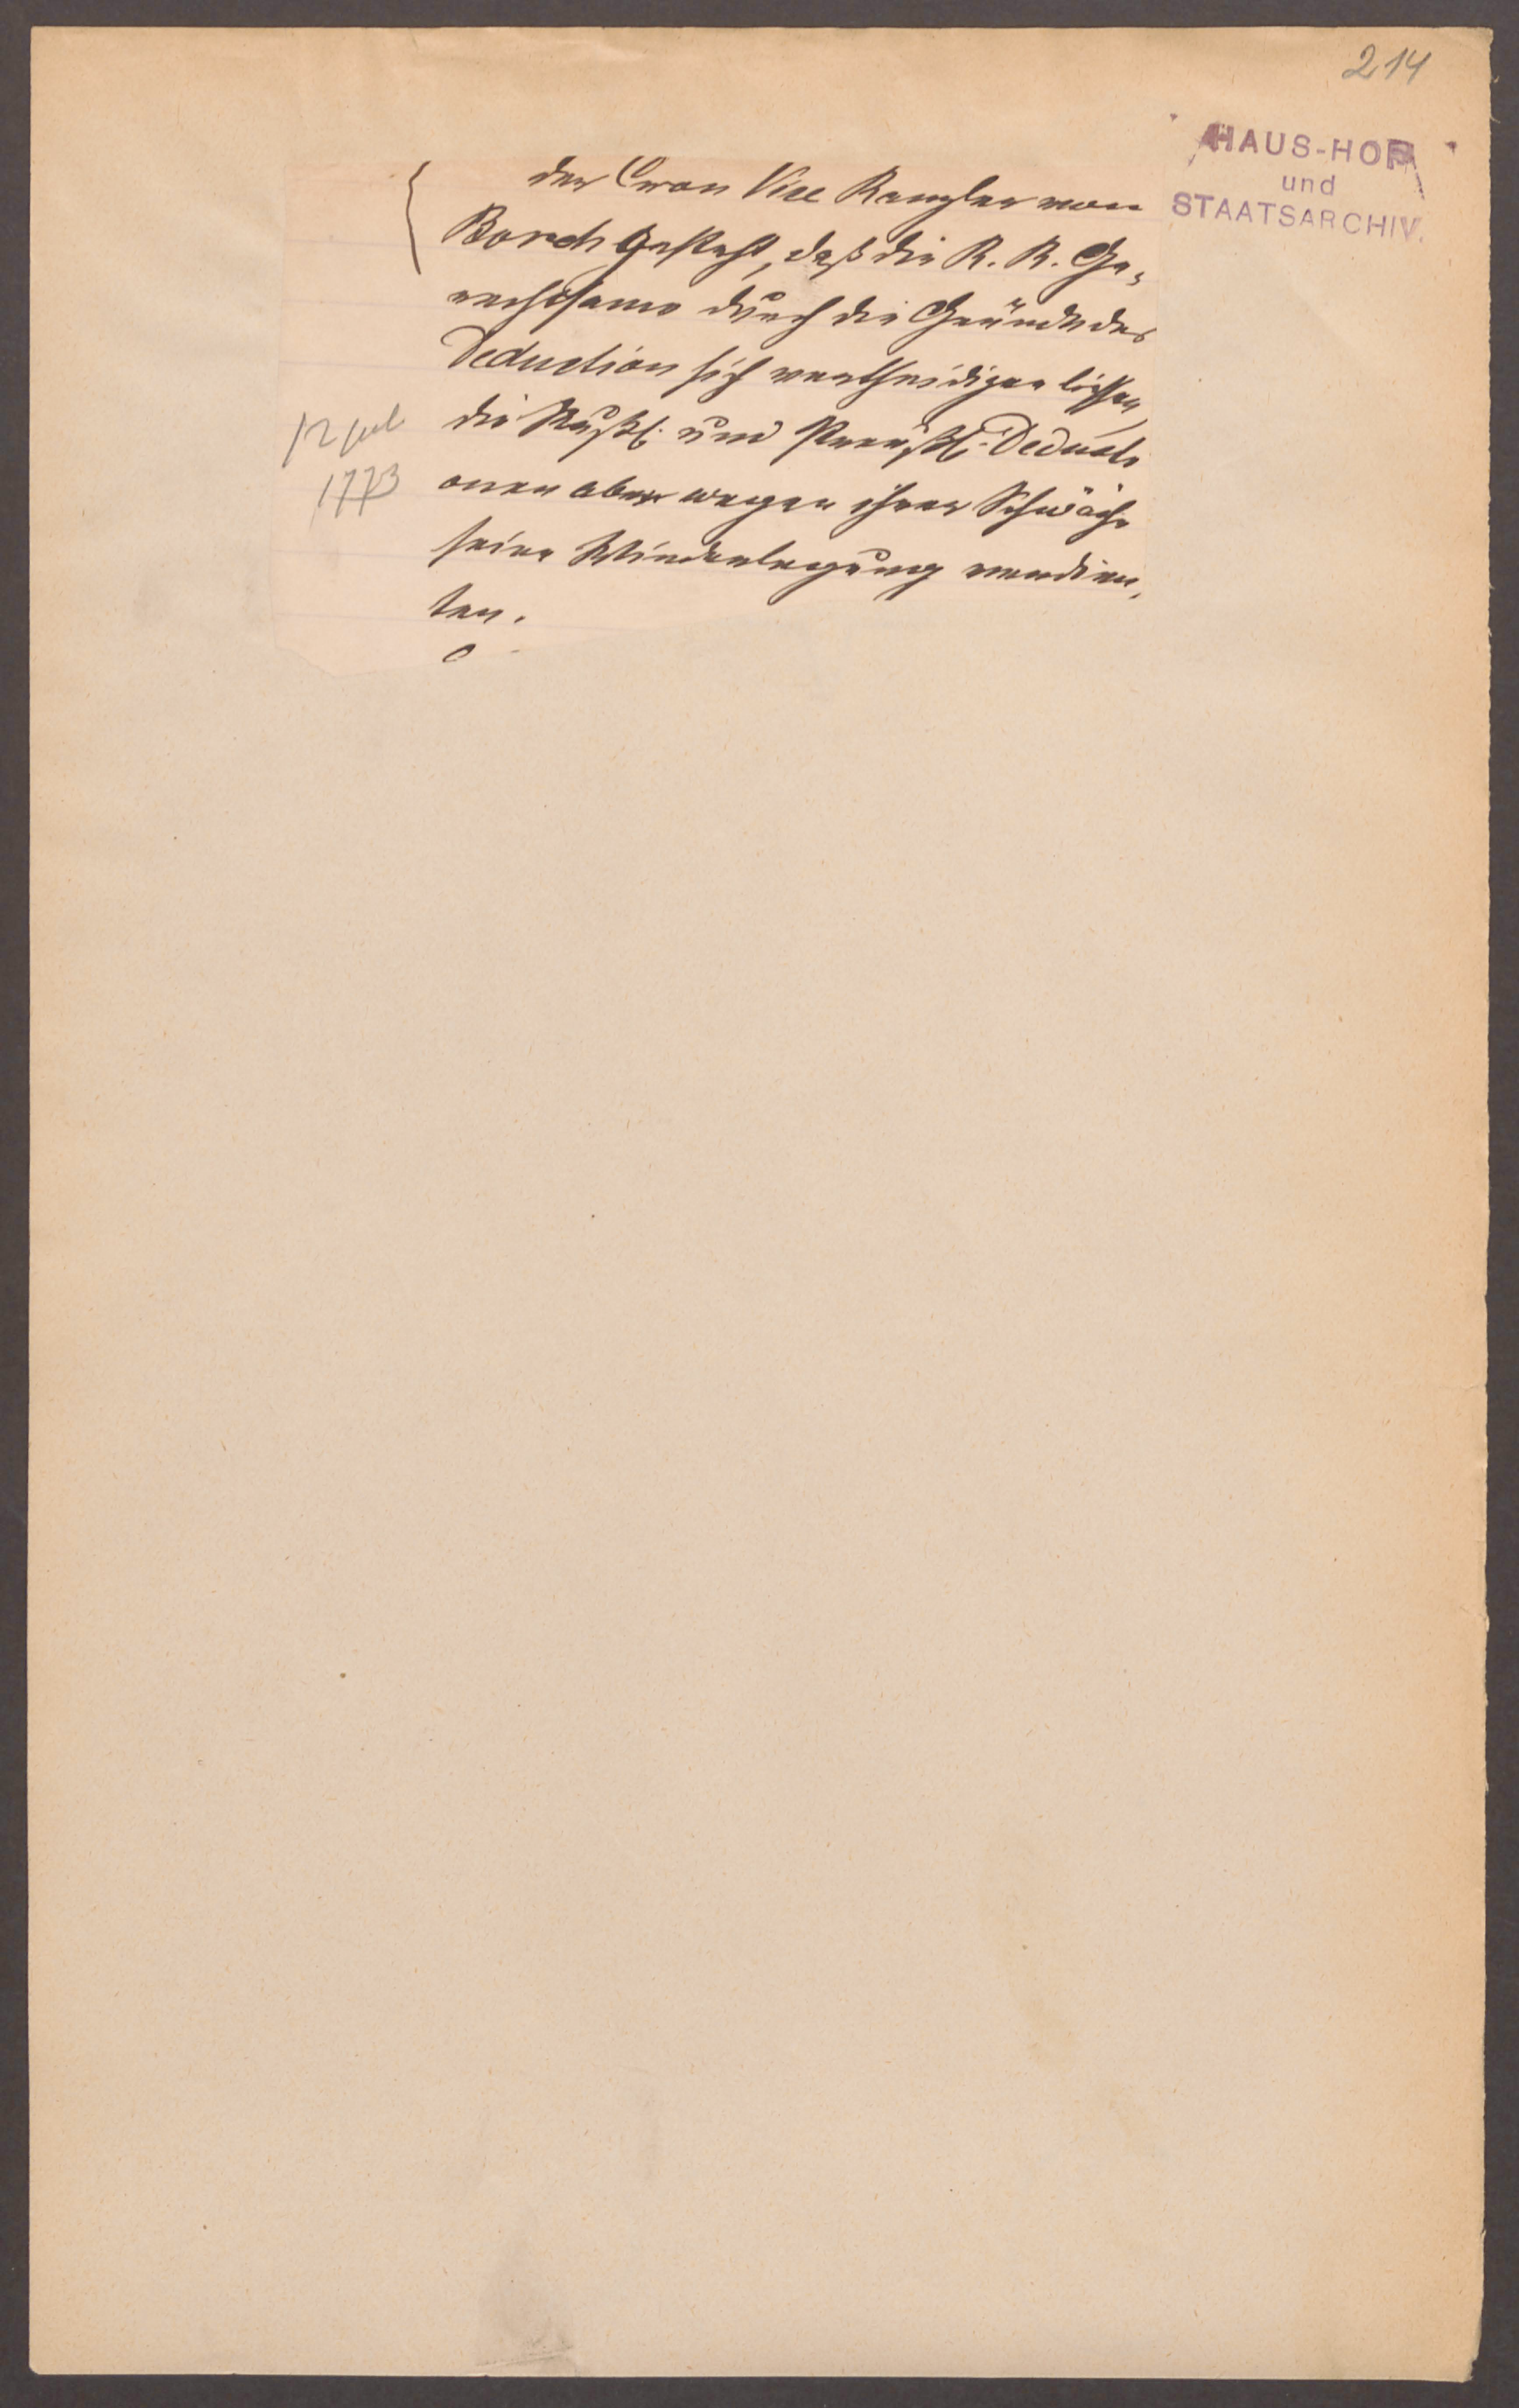 214
HAUS-HOF
und
STAATSARCHIV.
der Cron Vice Kanzler von
Borch gesteht, daß die K. K. Ge-
rechtsame durch die Gründe der
Deduction sich vertheidigen ließen,
die Rußl. und Preußl. Deducti
onen aber wegen ihrer Schwäche
keine Wiederlegung verdien-
ten.
12 Jul
1773